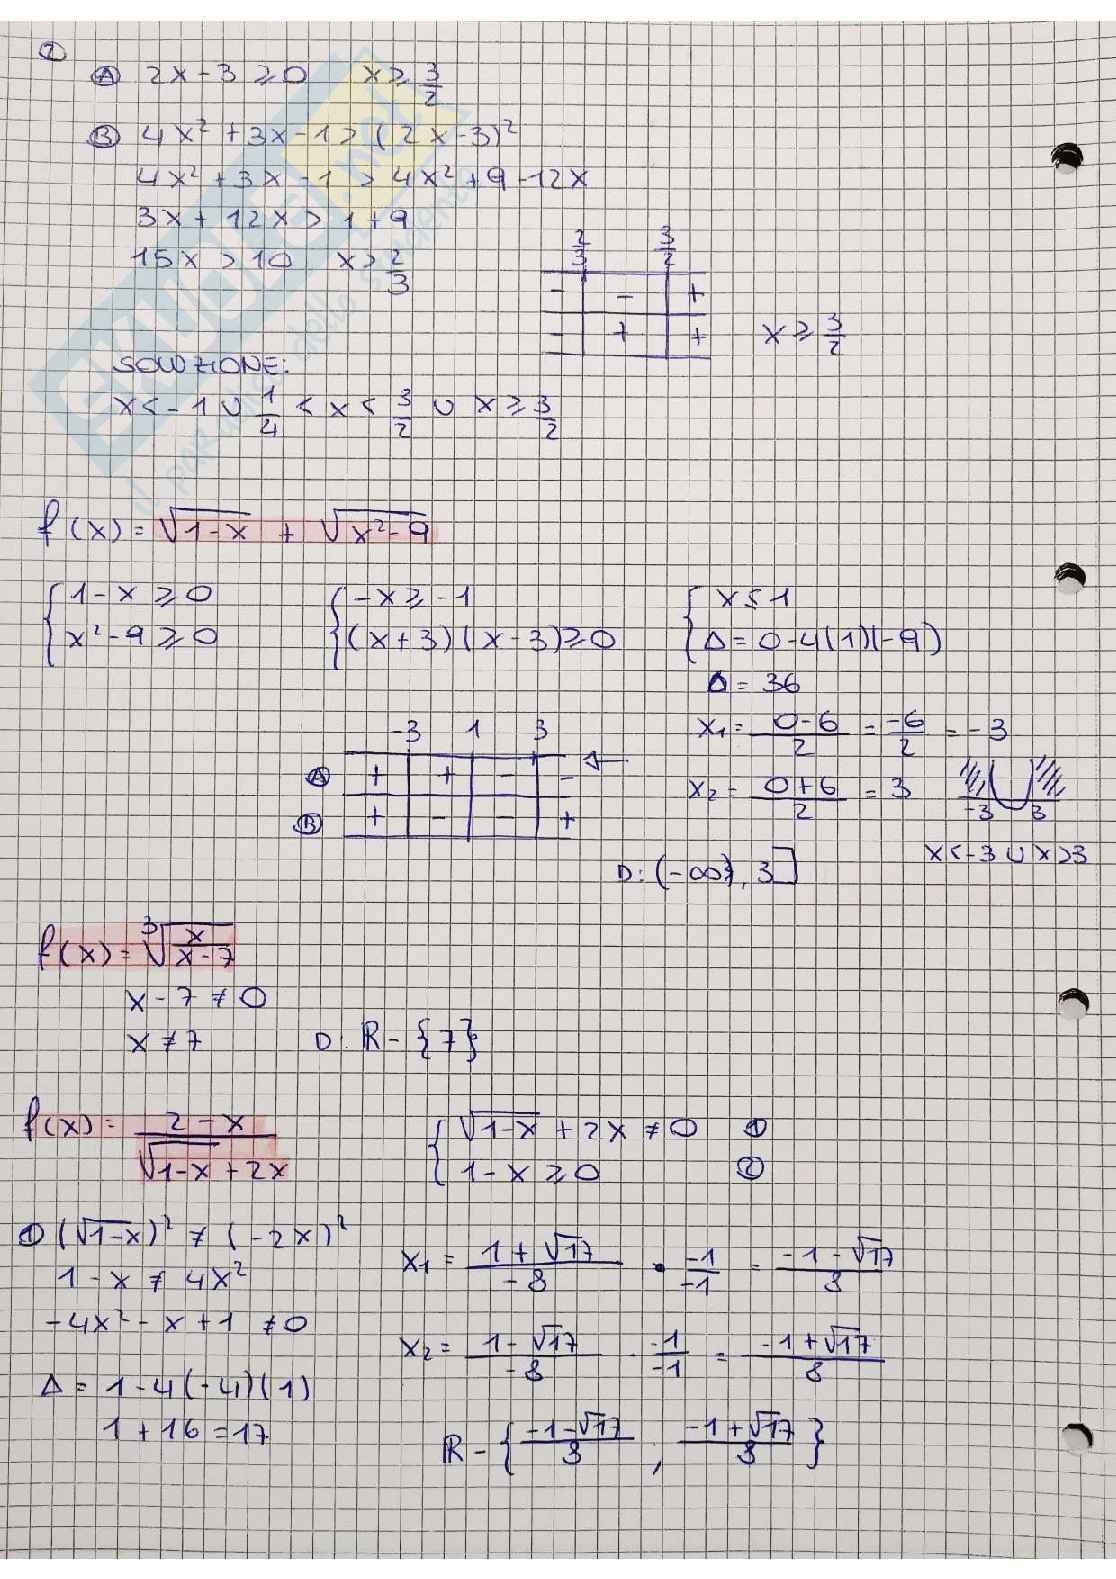 ②
Ⓐ 2x-3 ≥ 0 x ≥ 3/2
Ⓑ 4x² + 3x - 1 > (2x-3)²
4x² + 3x - 1 > 4x² + 9 - 12x
3x + 12x > 1 + 9
15x > 10 x > 2/3
2/3 3/2
- - +
- + + x ≥ 3/2
SOLUZIONE:
x < -1 ∪ 1/4 < x < 3/2 ∪ x ≥ 3/2
f(x) = √(1-x) + √(x²-9)
{ 1-x ≥ 0 { -x ≥ -1 { x ≤ 1
x²-9 ≥ 0 (x+3)(x-3) ≥ 0 Δ = 0-4(1)(-9)
Δ = 36
x₁ = (0-6)/2 = -6/2 = -3
-3 1 3
Ⓐ + + - -
x₂ = (0+6)/2 = 3
Ⓑ + - - +
-3 3
x < -3 ∪ x > 3
D: (-∞, 3]
f(x) = ³√(x/(x-7))
x - 7 ≠ 0
x ≠ 7 D: R - {7}
f(x) = (2-x)/(√(1-x) + 2x) { √(1-x) + 2x ≠ 0 ①
1-x ≥ 0 ②
① (√(1-x))² ≠ (-2x)²
1 - x ≠ 4x²
-4x² - x + 1 ≠ 0
Δ = 1-4(-4)(1)
1 + 16 = 17
x₁ = (1+√17)/-8 · -1/-1 = (-1-√17)/8
x₂ = (1-√17)/-8 · -1/-1 = (-1+√17)/8
R - {(-1-√17)/8 , (-1+√17)/8}